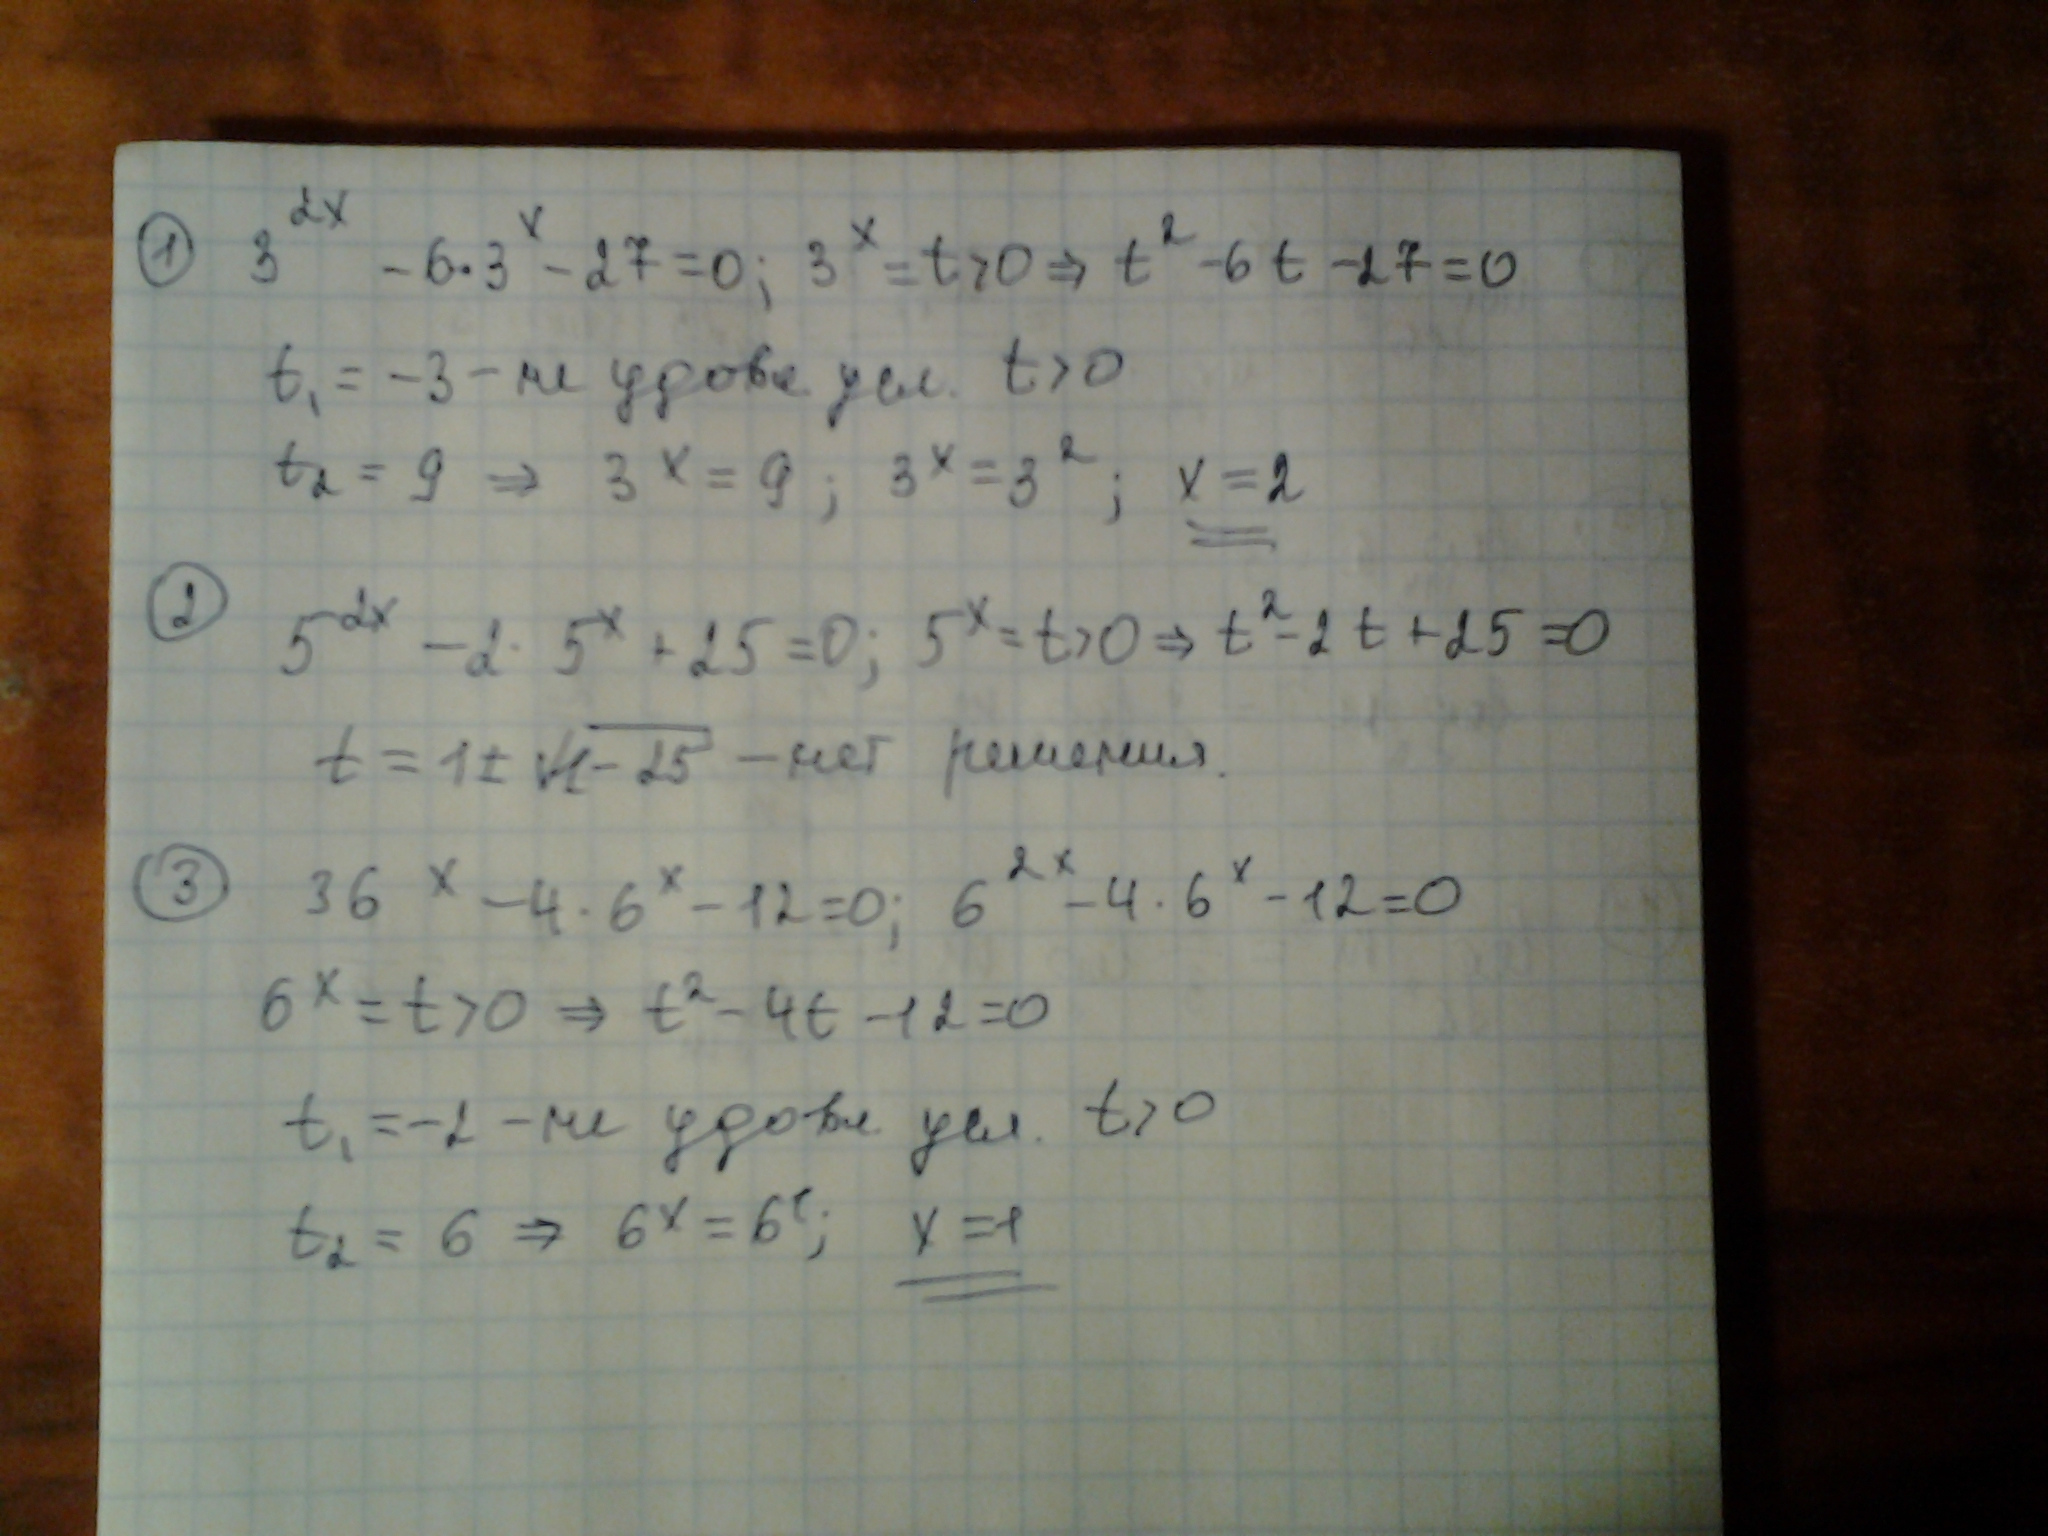 ① 3^{2x} - 6·3^x - 27 = 0; 3^x = t > 0 ⇒ t² - 6t - 27 = 0
t₁ = -3 - не удовл. усл. t > 0
t₂ = 9 ⇒ 3^x = 9; 3^x = 3²; x = 2
② 5^{2x} - 2· 5^x + 25 = 0; 5^x = t > 0 ⇒ t² - 2t + 25 = 0
t = 1 ± √(1 - 25) - нет решения.
③ 36^x - 4·6^x - 12 = 0; 6^{2x} - 4·6^x - 12 = 0
6^x = t > 0 ⇒ t² - 4t - 12 = 0
t₁ = -2 - не удовл. усл. t > 0
t₂ = 6 ⇒ 6^x = 6¹; x = 1